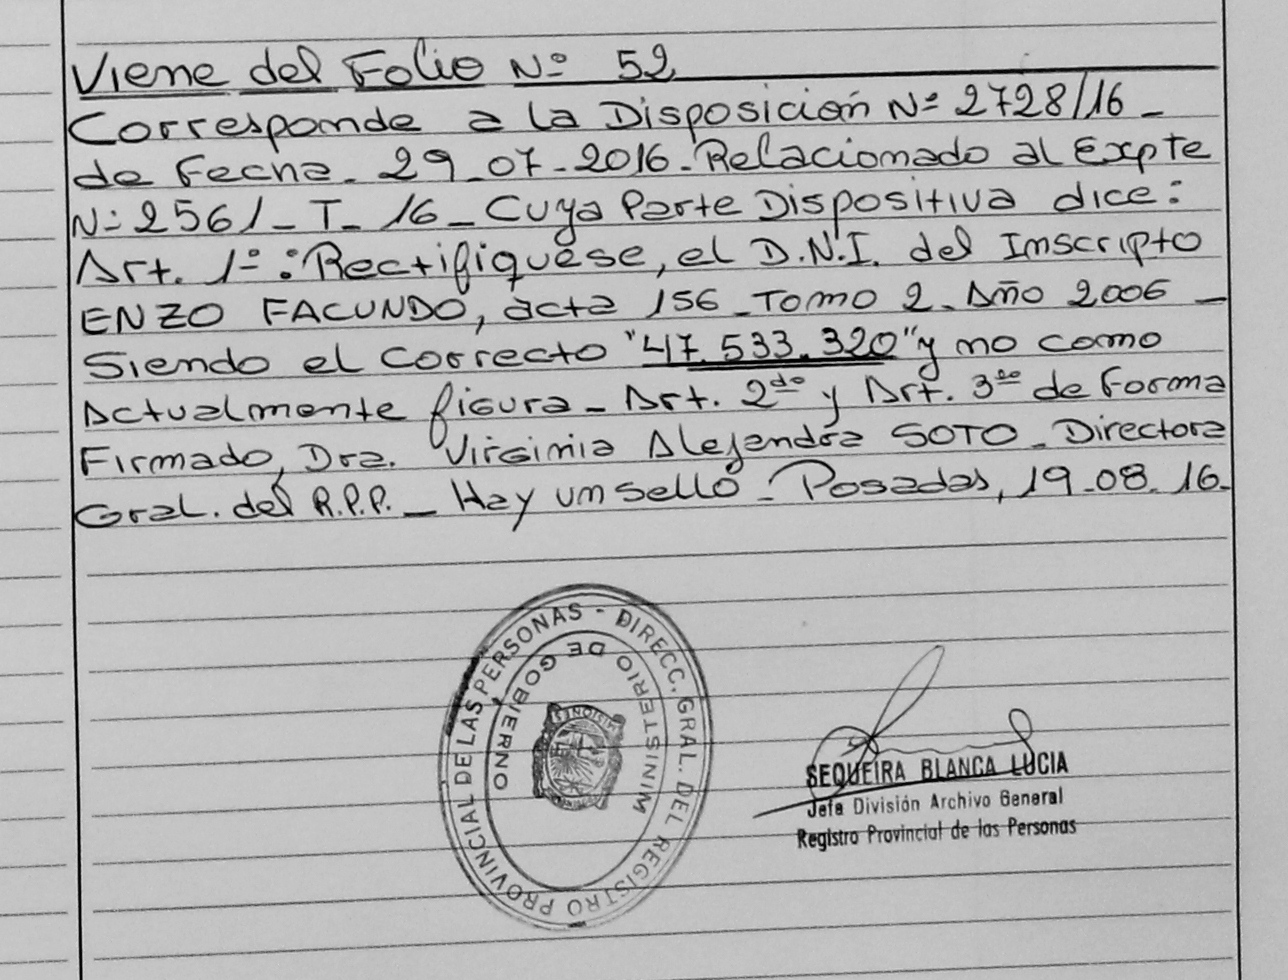 Viene del Folio Nº 52
Corresponde a la Disposición Nº 2728/16 -
de Fecha - 29 - 07 - 2016 - Relacionado al Expte
Nº 2561 - T - 16 - Cuya Parte Dispositiva dice:
Art. 1º: Rectifiquese, el D.N.I. del Inscripto
ENZO FACUNDO, acta 156 - Tomo 2 - Año 2006 -
Siendo el Correcto "47.533.320" y no como
Actualmente figura - Art. 2do y Art. 3ro de Forma
Firmado, Dra. Virginia Alejandra SOTO - Directora
Gral. del R.P.P. - Hay un sello - Posadas, 19 - 08 - 16 -
DIRECC. GRAL. DEL REGISTRO PROVINCIAL DE LAS PERSONAS -
MINISTERIO DE GOBIERNO
MISIONES
SEQUEIRA BLANCA LUCIA
Jefa División Archivo General
Registro Provincial de las Personas